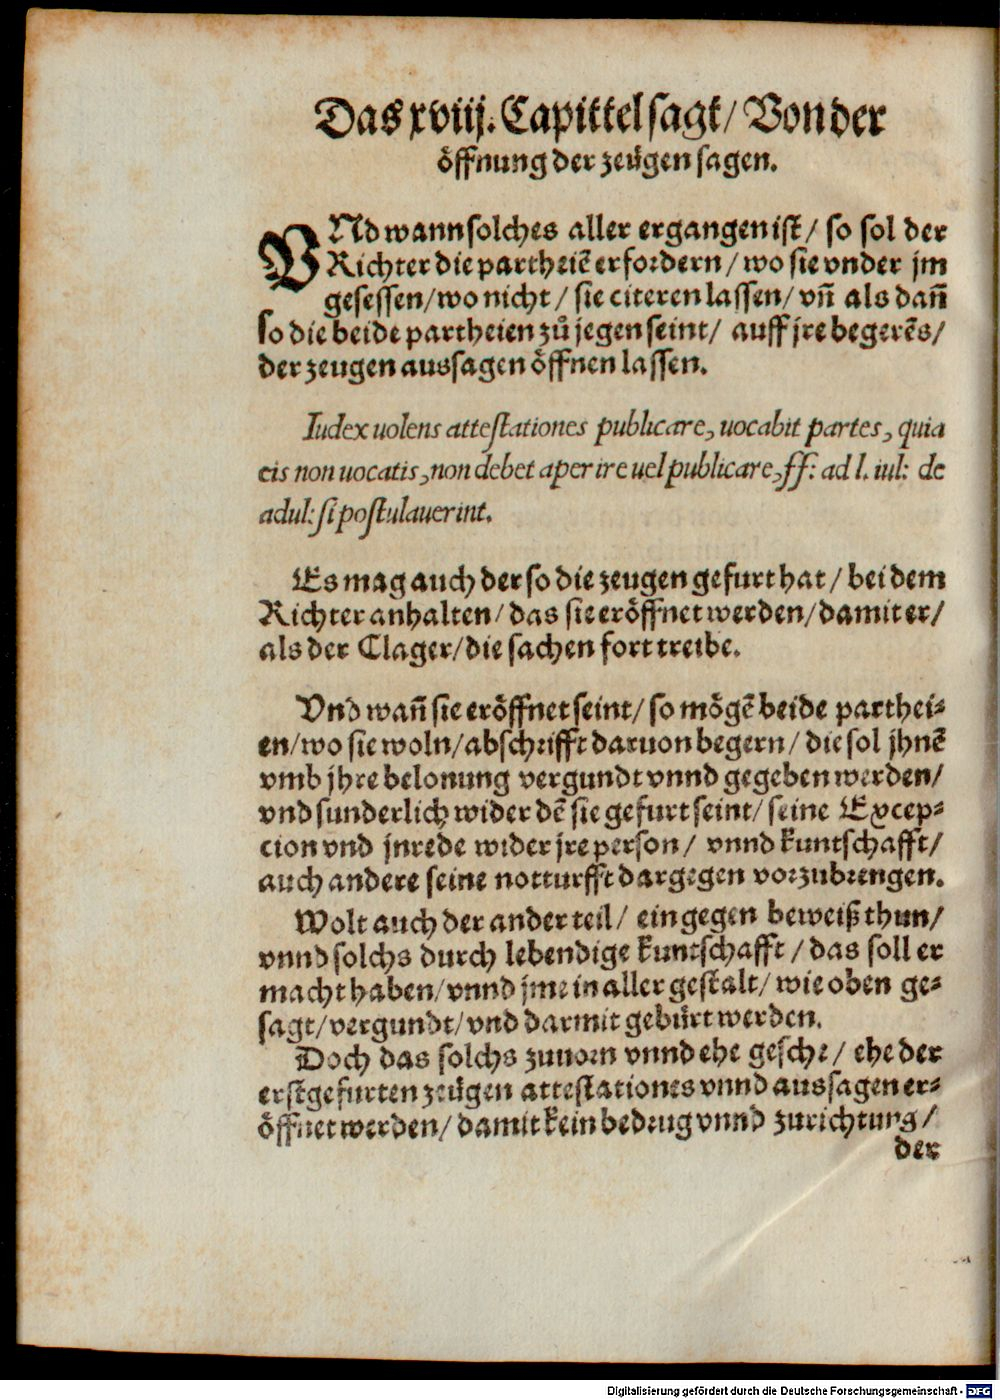 Das xviij. Capittel sagt / Von der
öffnung der zeügen sagen.
VNd wann solches aller ergangen ist / so sol der
Richter die partheiē erfordern / wo sie vnder jm
gesessen / wo nicht / sie citeren lassen / vñ als dañ
so die beide partheien zů jegen seint / auff jre begerēs /
der zeugen aussagen öffnen lassen.
Iudex uolens attestationes publicare, uocabit partes, quia
eis non uocatis, non debet aperire uel publicare, ff: ad l. iul: de
adul: si postulauerint.
Es mag auch der so die zeugen gefurt hat / bei dem
Richter anhalten / das sie eröffnet werden / damit er /
als der Clager / die sachen fort treibe.
Vnd wañ sie eröffnet seint / so mögē beide parthei⸗
en / wo sie woln / abschrifft daruon begern / die sol jhnē
vmb jhre belonung vergundt vnnd gegeben werden /
vnd sunderlich wider dē sie gefurt seint / seine Excep⸗
cion vnd jnrede wider jre person / vnnd kuntschafft /
auch andere seine notturfft dargegen vorzubrengen.
Wolt auch der ander teil / ein gegen beweiß thun /
vnnd solchs durch lebendige kuntschafft / das soll er
macht haben / vnnd jme in aller gestalt / wie oben ge⸗
sagt / vergundt / vnd darmit gebürt werden.
Doch das solchs zuuorn vnnd ehe geschee / ehe der
erstgefurten zeügen attestationes vnnd aussagen er⸗
öffnet werden / damit kein bedrug vnnd zurichtung /
der
Digitalisierung gefördert durch die Deutsche Forschungsgemeinschaft - DFG